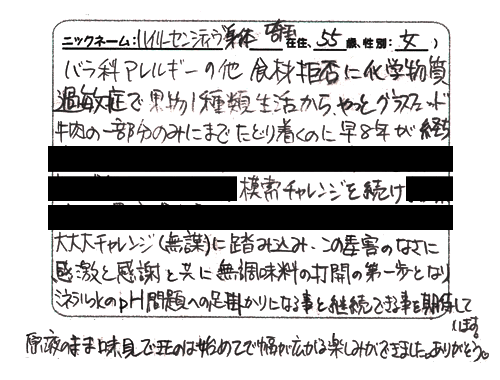 ニックネーム:ハイパーセンシティヴ身体 埼玉在住、55歳、性別:女)
バラ科アレルギーの他 食材拒否に化学物質
過敏症で果物1種類生活から、やっとグラスフェッド
牛肉の一部分のみにまでたどり着くのに早8年が経ち
検索チャレンジを続け
大大大チャレンジ(無謀)に踏み込み、この障害のなさに
感激と感謝と共に無調味料の打開の第一歩となり
ミネラルとのpH問題への足掛かりになる事と継続できる事を期待して
います。
原液のまま味見できたのは始めてで幅が広がる楽しみができました。ありがとう。